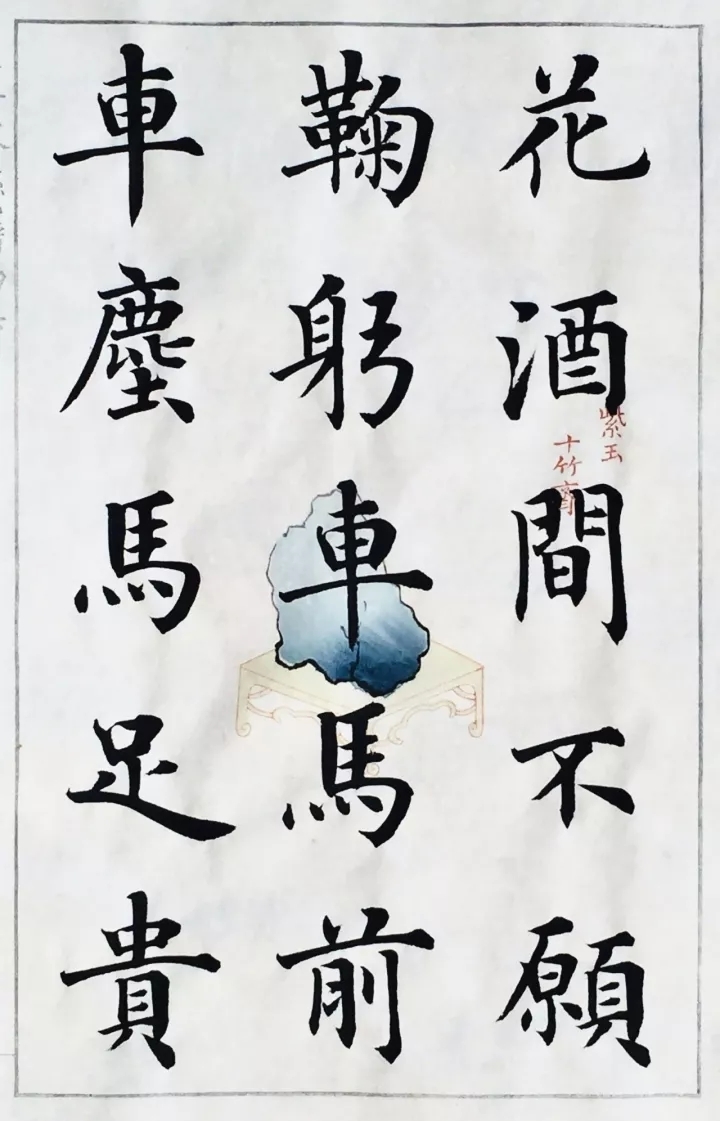 花酒間不願
鞠躬車馬前
車塵馬足貴
紫玉
十竹齋